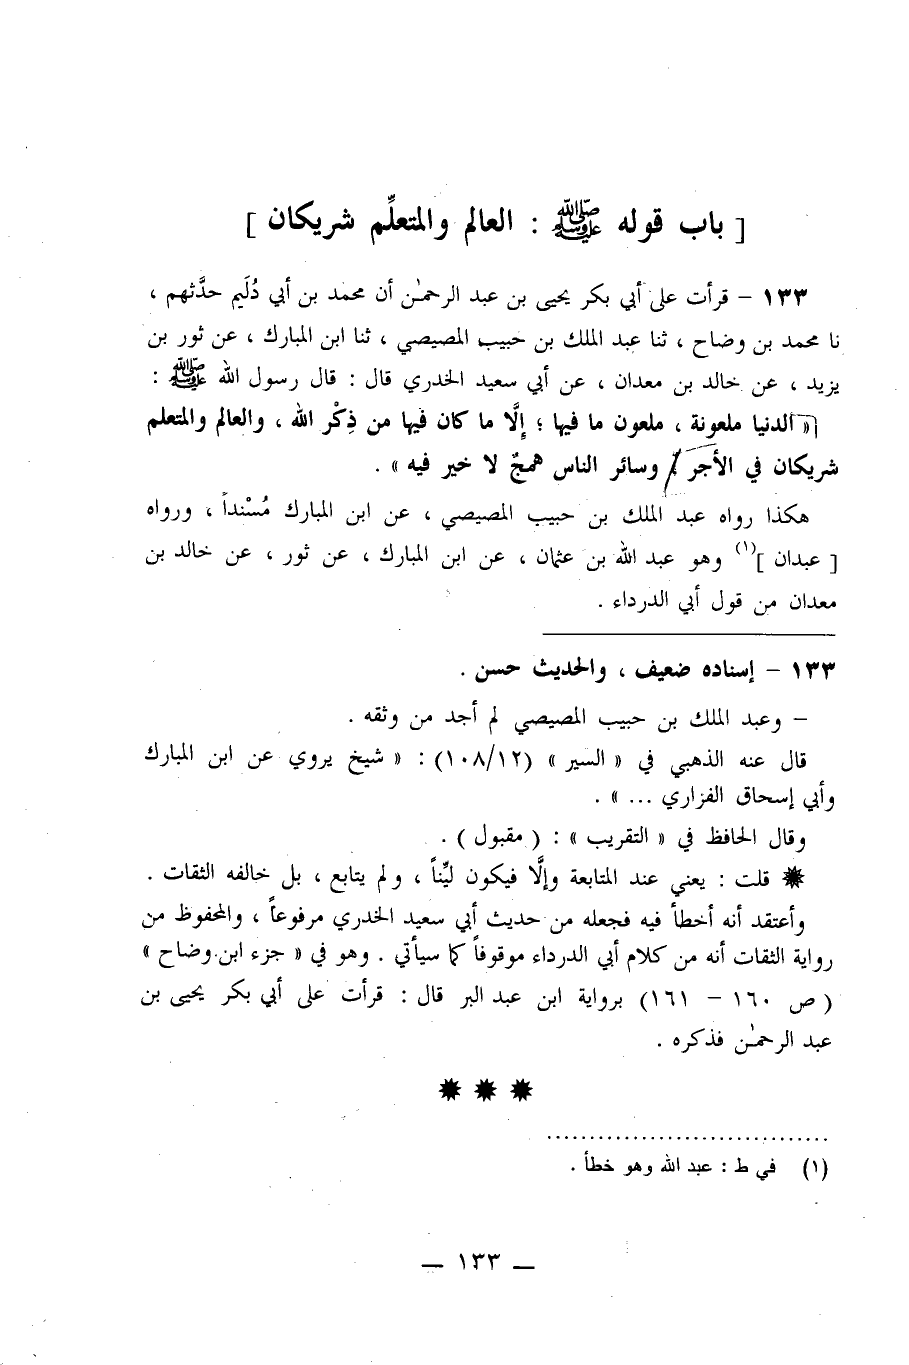 [ باب قوله ﷺ : العالم والمتعلِّم شريكان ]
١٣٣ – قرأت على أبي بكر يحيى بن عبد الرحمٰن أن محمد بن أبي دُلَيم حدَّثهم ،
نا محمد بن وضاح ، ثنا عبد الملك بن حبيب المصيصي ، ثنا ابن المبارك ، عن ثور بن
يزيد ، عن خالد بن معدان ، عن أبي سعيد الخدري قال : قال رسول الله ﷺ :
« الدنيا ملعونة ، ملعون ما فيها ؛ إلَّا ما كان فيها من ذِكْر الله ، والعالم والمتعلم
شريكان في الأجر / وسائر الناس همجٌ لا خير فيه » .
هكذا رواه عبد الملك بن حبيب المصيصي ، عن ابن المبارك مُسْنداً ، ورواه
[ عبدان ](١) وهو عبد الله بن عثمان ، عن ابن المبارك ، عن ثور ، عن خالد بن
معدان من قول أبي الدرداء .
١٣٣ – إسناده ضعيف ، والحديث حسن .
– وعبد الملك بن حبيب المصيصي لم أجد من وثقه .
قال عنه الذهبي في « السير » (١٠٨/١٢) : « شيخ يروي عن ابن المبارك
وأبي إسحاق الفزاري ... » .
وقال الحافظ في « التقريب » : ( مقبول ) .
✹ قلت : يعني عند المتابعة وإلَّا فيكون ليِّناً ، ولم يتابع ، بل خالفه الثقات .
وأعتقد أنه أخطأ فيه فجعله من حديث أبي سعيد الخدري مرفوعاً ، والمحفوظ من
رواية الثقات أنه من كلام أبي الدرداء موقوفاً كما سيأتي . وهو في « جزء ابن وضاح »
( ص ١٦٠ – ١٦١ ) برواية ابن عبد البر قال : قرأت على أبي بكر يحيى بن
عبد الرحمٰن فذكره .
✹ ✹ ✹
(١) في ط : عبد الله وهو خطأ .
– ١٣٣ –